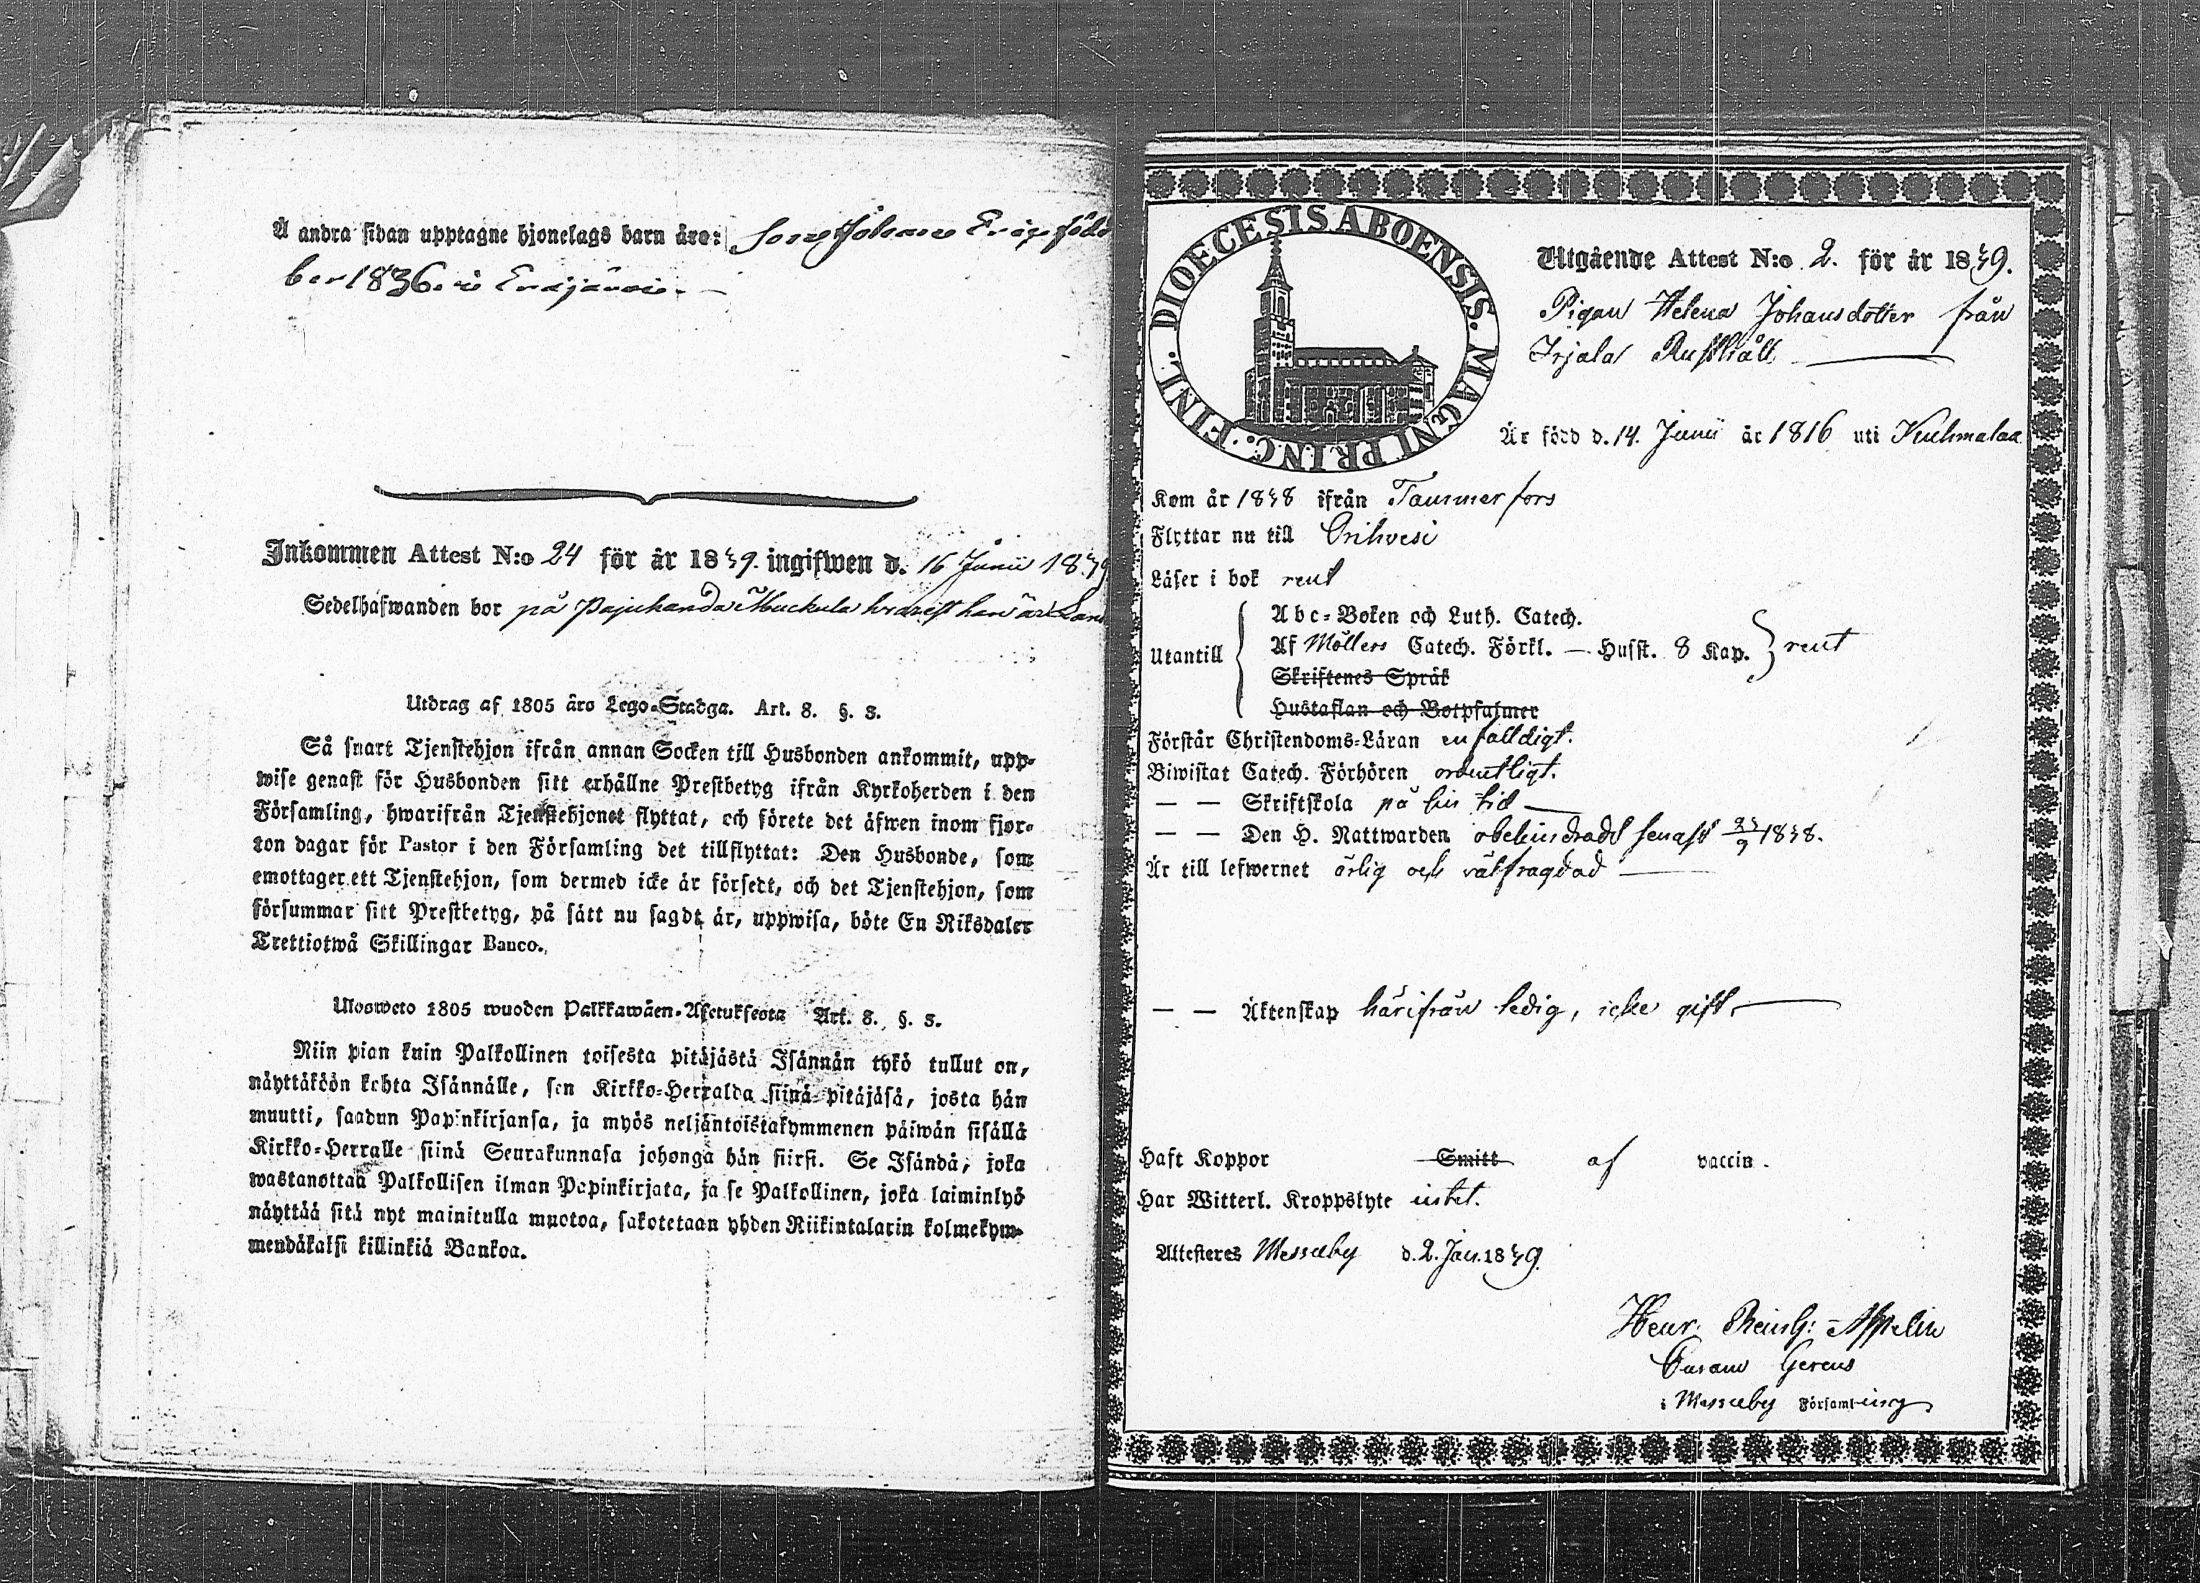 Å andra sidan upptagne hjonelags barn äro: son Johan Eric född
ber 1836. i Eräjärvi. —
Inkommen Attest N:o 24 för år 1839. ingifwen d. 16 Junii 1839
Sedelhafwanden bor på Pajukanda Muckula hvarest han är
Utdrag af 1805 års Lego-Stadga. Art. 8. §. 3.
Så snart Tjenstehjon ifrån annan Socken till Husbonden ankommit, upp-
wise genast för Husbonden sitt erhållne Prestbetyg ifrån Kyrkoherden i den
Församling, hwarifrån Tjenstehjonet flyttat, och förete det äfwen inom fjor-
ton dagar för Pastor i den Församling det tillflyttat: Den Husbonde, som
emottager ett Tjenstehjon, som dermed icke är försedt, och det Tjenstehjon, som
försummar sitt Prestbetyg, på sätt nu sagdt är, uppwisa, böte En Riksdaler
Trettiotwå Skillingar Banco.
Ulosweto 1805 wuoden Palkkawäen-Asetuksesta Art. 8. §. 3.
Niin pian kuin Palkollinen toisesta pitäjästä Isännän tykö tullut on,
näyttäköön kohta Isännälle, sen Kirkko-Herralda siinä pitäjäsä, josta hän
muutti, saadun Papinkirjansa, ja myös neljäntoistakymmenen päiwän sisällä
Kirkko-Herralle siinä Seurakunnasa johonga hän siirsi. Se Isändä, joka
wastanottaa Palkollisen ilman Papinkirjata, ja se Palkollinen, joka laiminlyö
näyttää sitä nyt mainitulla muotoa, sakotetaan yhden Riikintalarin kolmekym-
mendäkaksi killinkiä Bankoa.
DIOECESIS ABOENSIS. MAGNI PRINC. FINL.
Utgående Attest N:o 2. för år 1839.
Pigan Helena Johansdotter från
Irjala Rusthåll
Är född d. 14. Junii år 1816 uti Kuhmalax
Kom år 1838 ifrån Tammerfors
Flyttar nu till Orihvesi
Läser i bok rent
Abc-Boken och Luth. Catech.
Utantill Af Möllers Catech. Förkl. — Husst. 8 Kap. rent
Skriftenes Språk
Hustaflan och Botpsalmer
Förstår Christendoms-Läran enfalldigt.
Biwistat Catech. Förhören ordentligt.
— — Skriftskola på sin tid
— — Den H. Nattwarden obehindradt senast 23/9 1838.
Är till lefwernet ärlig och välfragdad
— — Äktenskap härifrån ledig, icke gift
Haft Koppor Smitt af vaccin.
Har Witterl. Kroppslyte intet.
Attesteras Messuby d. 2. Jan. 1839.
Henr. Reinh: Asp­elin
Curam Gerens
i Messuby Församling